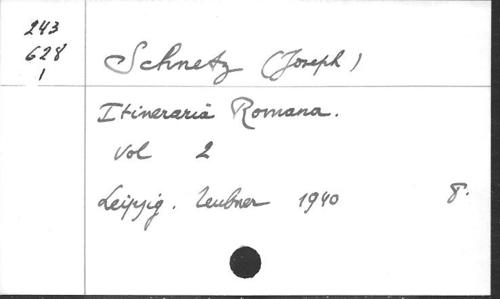 243
628
1
Schnetz (Joseph)
Itineraria Romana.
Vol 2
Leipzig. Teubner 1940 8.